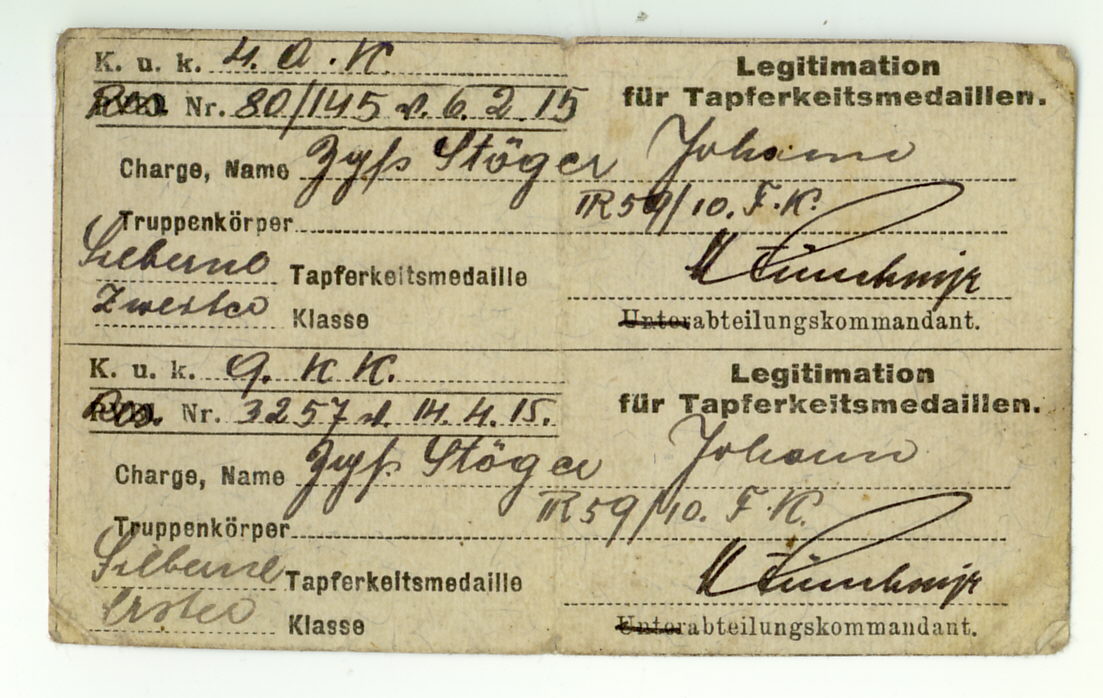 K. u. k. 4. A. K. Legitimation
Nr. 80/145 v. 6. 2. 15 für Tapferkeitsmedaillen.
Charge, Name Zgsf Stöger Johann
Truppenkörper IR 59/10. F. K.
Silberne Tapferkeitsmedaille
Zweiter Klasse Unterabteilungskommandant.
K. u. k. 9. K K. Legitimation
Nr. 3257 v. 14. 4. 15. für Tapferkeitsmedaillen.
Charge, Name Zgsf Stöger Johann
Truppenkörper IR 59/10. F. K.
Silberne Tapferkeitsmedaille
Erster Klasse Unterabteilungskommandant.